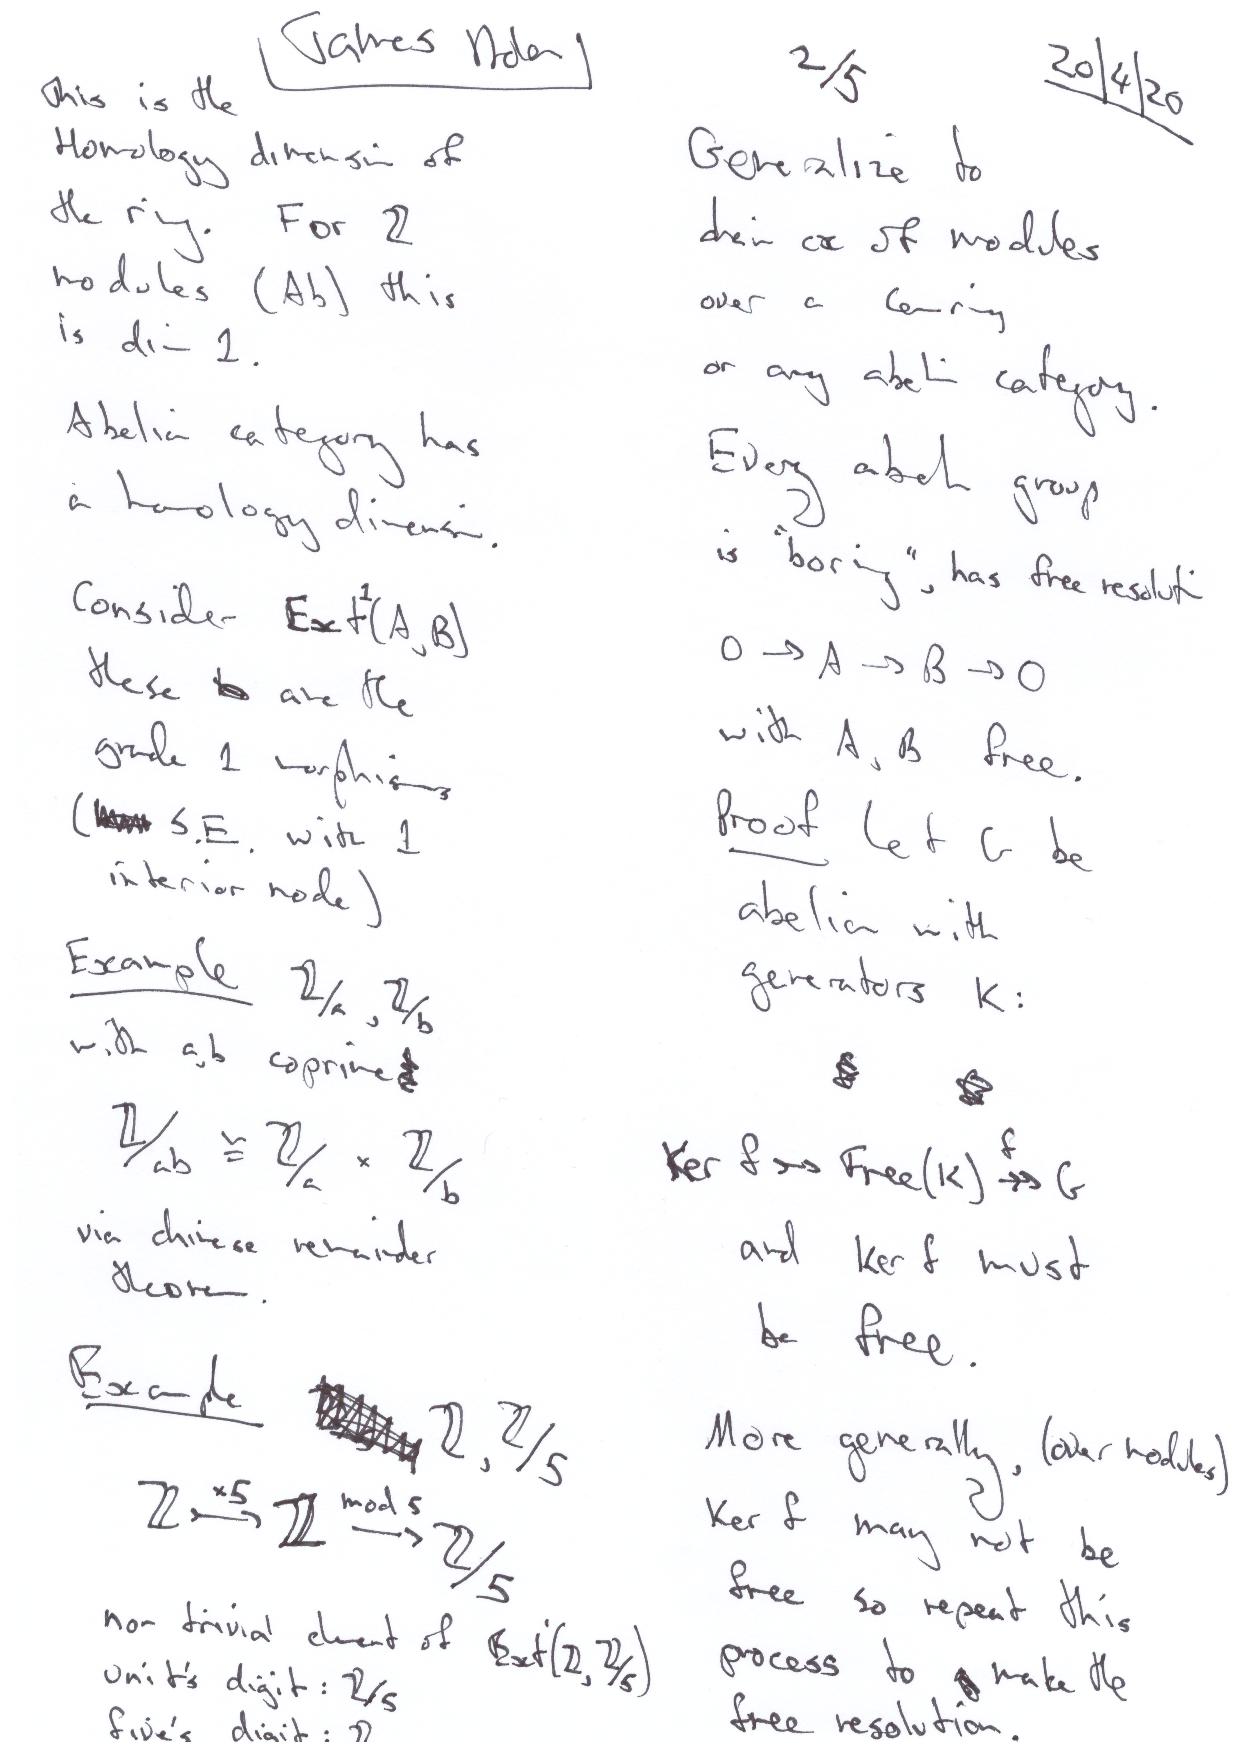 James Nolan
2/5
20/4/20
This is the
Homology dimensin of
the ring. For ℤ
modules (Ab) this
is dim 1.
Abelian category has
a homology dimensin.
Consider Ext¹(A,B)
these are the
grade 1 morphisms
( S.E. with 1
interior node)
Example ℤ/a, ℤ/b
with a,b coprime
ℤ/ab ≅ ℤ/a × ℤ/b
via chinese remainder
theorem.
Example ℤ, ℤ/5
ℤ ×5→ ℤ mod 5→ ℤ/5
non trivial element of Ext¹(ℤ, ℤ/5)
unit's digit: ℤ/5
five's digit: ℤ
Generalize to
chain cx of modules
over a ring
or any abelian category.
Every abelian group
is "boring", has free resoluti
0 → A → B → 0
with A, B free.
Proof Let G be
abelian with
generators K:
Ker f ↣ Free(K) f↠ G
and Ker f must
be free.
More generally, (over modules)
Ker f may not be
free so repeat this
process to make the
free resolution.